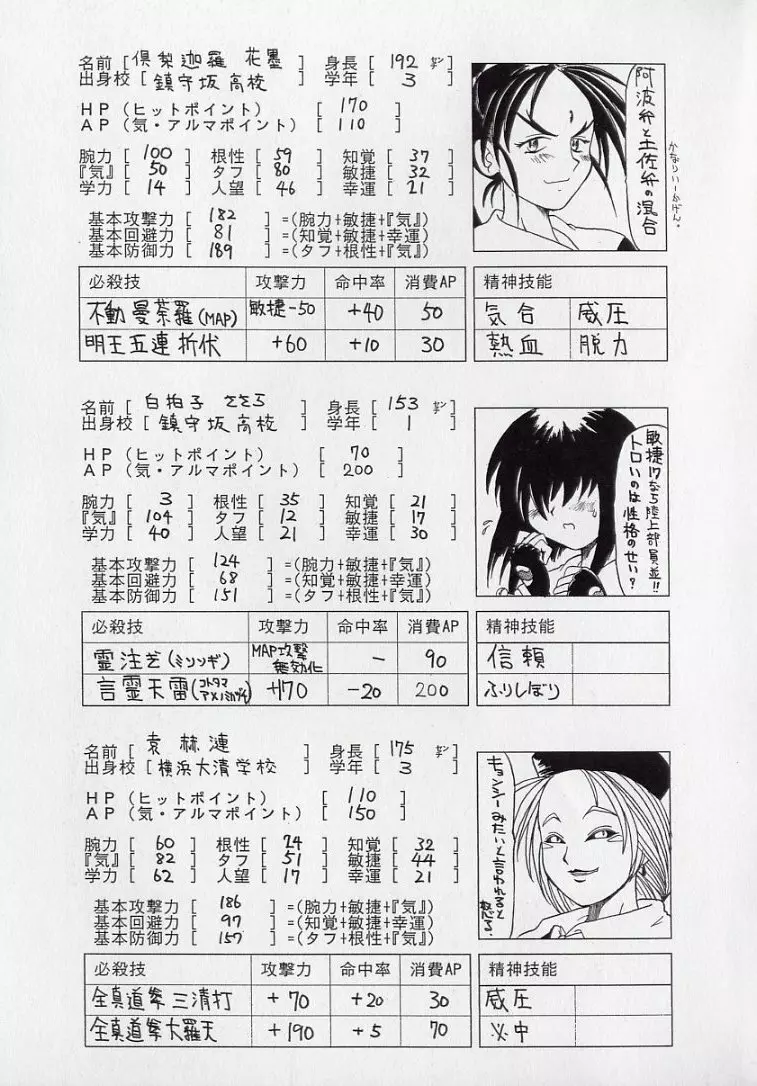 名前 [ 倶梨迦羅 花墨 ] 身長 [ 192 センチ ]
出身校 [ 鎮守坂高校 ] 学年 [ 3 ]
HP (ヒットポイント) [ 170 ]
AP (気・アルマポイント) [ 110 ]
腕力 [ 100 ] 根性 [ 59 ] 知覚 [ 37 ]
『気』[ 50 ] タフ [ 80 ] 敏捷 [ 32 ]
学力 [ 14 ] 人望 [ 46 ] 幸運 [ 21 ]
基本攻撃力 [ 182 ] =(腕力+敏捷+『気』)
基本回避力 [ 81 ] =(知覚+敏捷+幸運)
基本防御力 [ 189 ] =(タフ+根性+『気』)
阿波弁と土佐弁の混合
かなりいーかげん。
必殺技 攻撃力 命中率 消費AP
不動曼荼羅(MAP) 敏捷-50 +40 50
明王五連折伏 +60 +10 30
精神技能
気合 威圧
熱血 脱力
名前 [ 白拍子 ささら ] 身長 [ 153 センチ ]
出身校 [ 鎮守坂高校 ] 学年 [ 1 ]
HP (ヒットポイント) [ 70 ]
AP (気・アルマポイント) [ 200 ]
腕力 [ 3 ] 根性 [ 35 ] 知覚 [ 21 ]
『気』[ 104 ] タフ [ 12 ] 敏捷 [ 17 ]
学力 [ 40 ] 人望 [ 21 ] 幸運 [ 30 ]
基本攻撃力 [ 124 ] =(腕力+敏捷+『気』)
基本回避力 [ 68 ] =(知覚+敏捷+幸運)
基本防御力 [ 151 ] =(タフ+根性+『気』)
敏捷17なら陸上部員並!!
トロいのは性格のせい?
必殺技 攻撃力 命中率 消費AP
霊注ぎ(ミソソギ) MAP攻撃無効化 - 90
言霊天雷(コトタマ +170 -20 200
精神技能
信頼
ふりしぼり
名前 [ 袁 赫漣 ] 身長 [ 175 センチ ]
出身校 [ 横浜大清学校 ] 学年 [ 3 ]
HP (ヒットポイント) [ 110 ]
AP (気・アルマポイント) [ 150 ]
腕力 [ 60 ] 根性 [ 24 ] 知覚 [ 32 ]
『気』[ 82 ] タフ [ 51 ] 敏捷 [ 44 ]
学力 [ 62 ] 人望 [ 17 ] 幸運 [ 21 ]
基本攻撃力 [ 186 ] =(腕力+敏捷+『気』)
基本回避力 [ 97 ] =(知覚+敏捷+幸運)
基本防御力 [ 157 ] =(タフ+根性+『気』)
キョンシーみたいと言われると
怒る。
必殺技 攻撃力 命中率 消費AP
全真道拳三清打 +70 +20 30
全真道拳大羅天 +190 +5 70
精神技能
威圧
必中